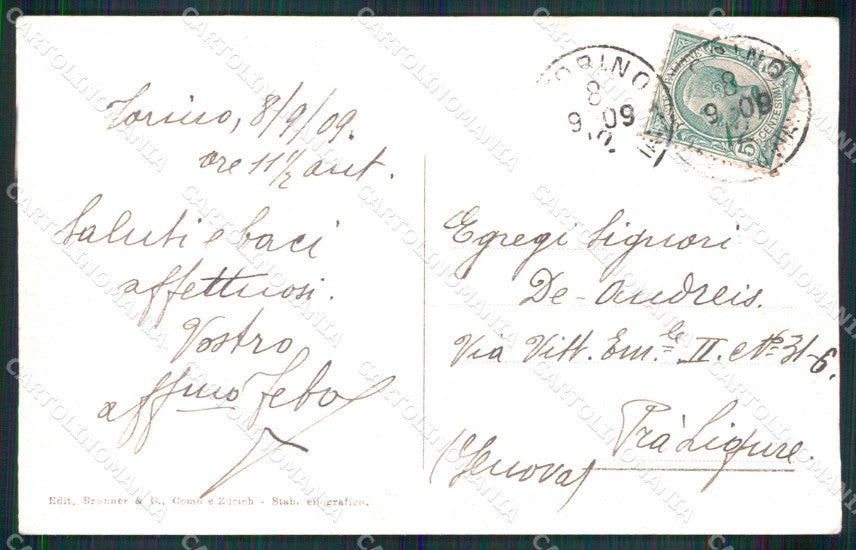 Torino, 8/9/09.
ore 11 1/2 ant.
Saluti e baci
affettuosi.
Vostro
affmo
Egregi Signori
De-Andreis.
Via Vitt. Em.le II. No 31-6.
Prà Ligure
(Genova)
TORINO
8
9 09
TORINO
8
9 09
CENTESIMI 5
Edit. Brunner & C., Como e Zürich - Stab. eliografico.
CARTOLINOMANIA